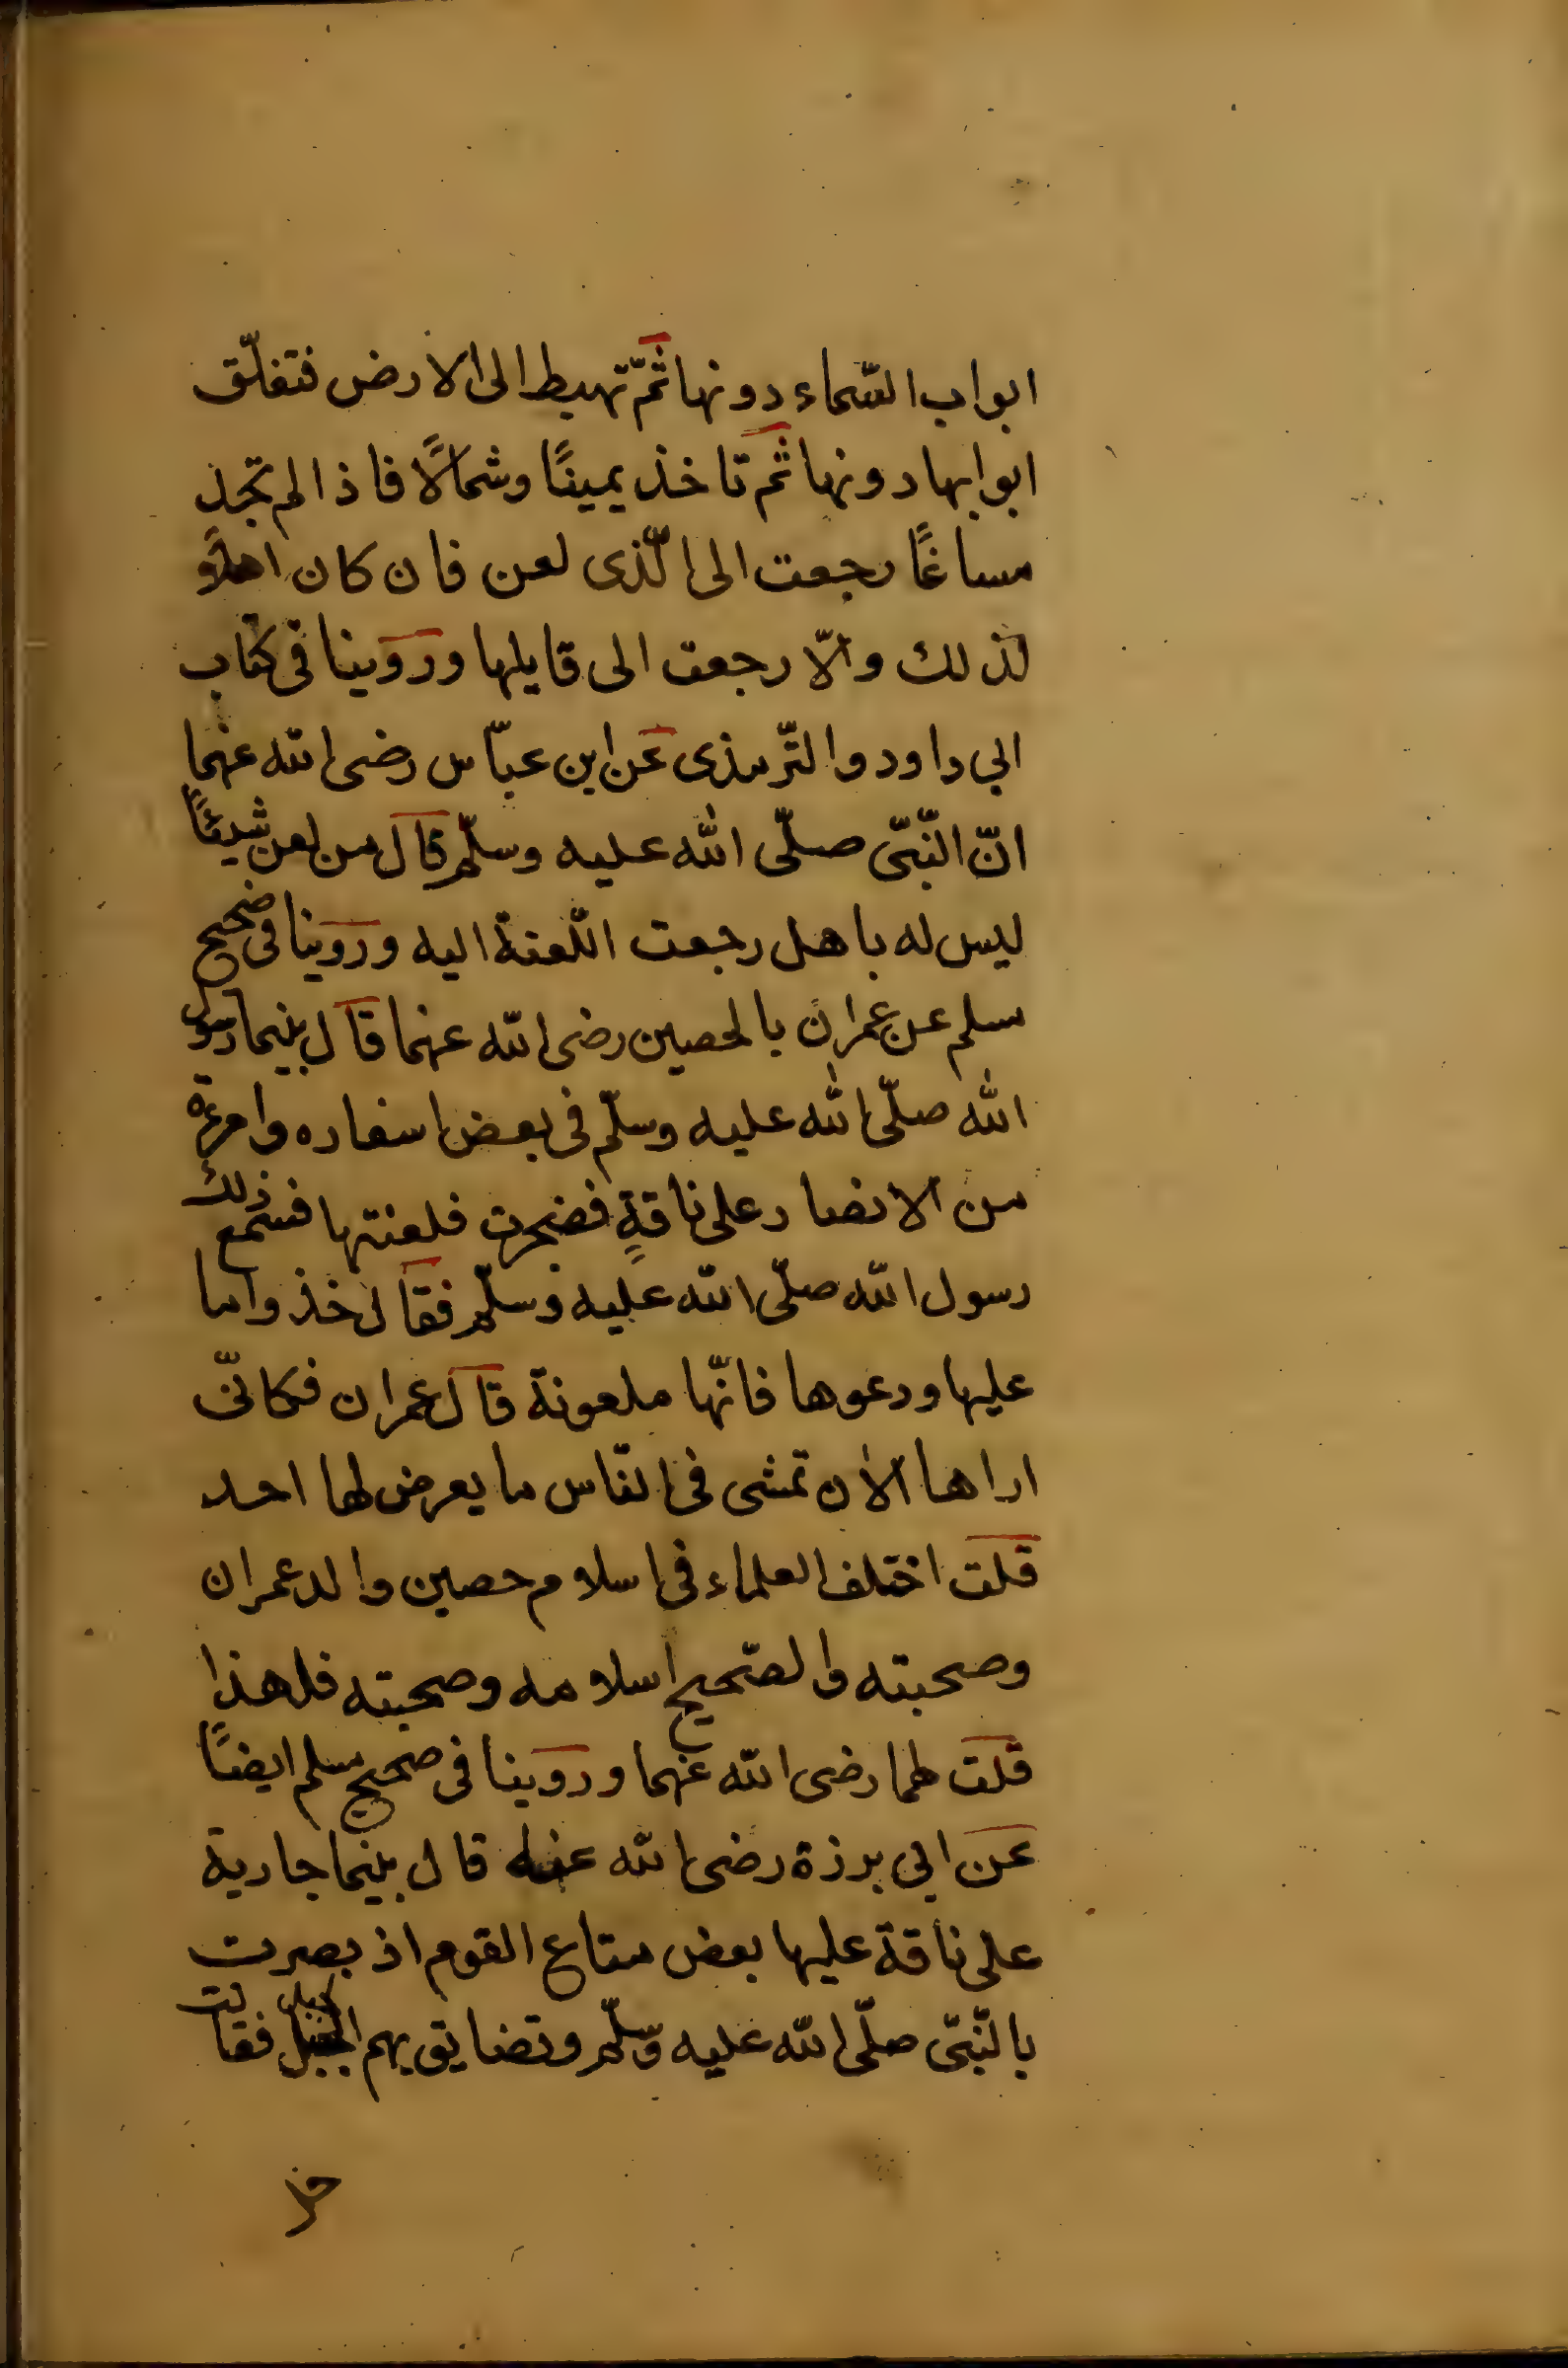 ابواب السّماء دونها ثمّ تهبط الى الارض فتغلّق
ابوابها دونها ثم تاخذ يمينًا وشمالًا فاذا لم تجد
مساغًا رجعت الى الّذى لعن فان كان اهلًا
لذلك والّا رجعت الى قايلها وروينا فى كتاب
ابي داود والتّرمذى عن ابن عبّاس رضى الله عنهما
انّ النّبىّ صلّى الله عليه وسلّم قال من لعن شيئًا
ليس له باهل رجعت اللّعنة اليه وروينا فى صحيح
مسلم عن عمران بالحصين رضى الله عنهما قال بينما رسول
الله صلّى الله عليه وسلّم فى بعض اسفاره وامرءة
من الانصار على ناقةٍ فضجرت فلعنتها فسمع ذلك
رسول الله صلّى الله عليه وسلّم فقال خذوا ما
عليها ودعوها فانّها ملعونة قال عمران فكانّى
اراها الان تمشى فى النّاس ما يعرض لها احد
قلت اختلف العلماء فى اسلام حصين والد عمران
وصحبته والصّحيح اسلامه وصحبته فلهذا
قلت لهما رضى الله عنهما وروينا فى صحيح مسلم ايضًا
عن ابي برزة رضى الله عنه قال بينما جارية
على ناقة عليها بعض متاع القوم اذ بصرت
بالنّبىّ صلّى الله عليه وسلّم وتضايق بهم الجبل فقالت
حل